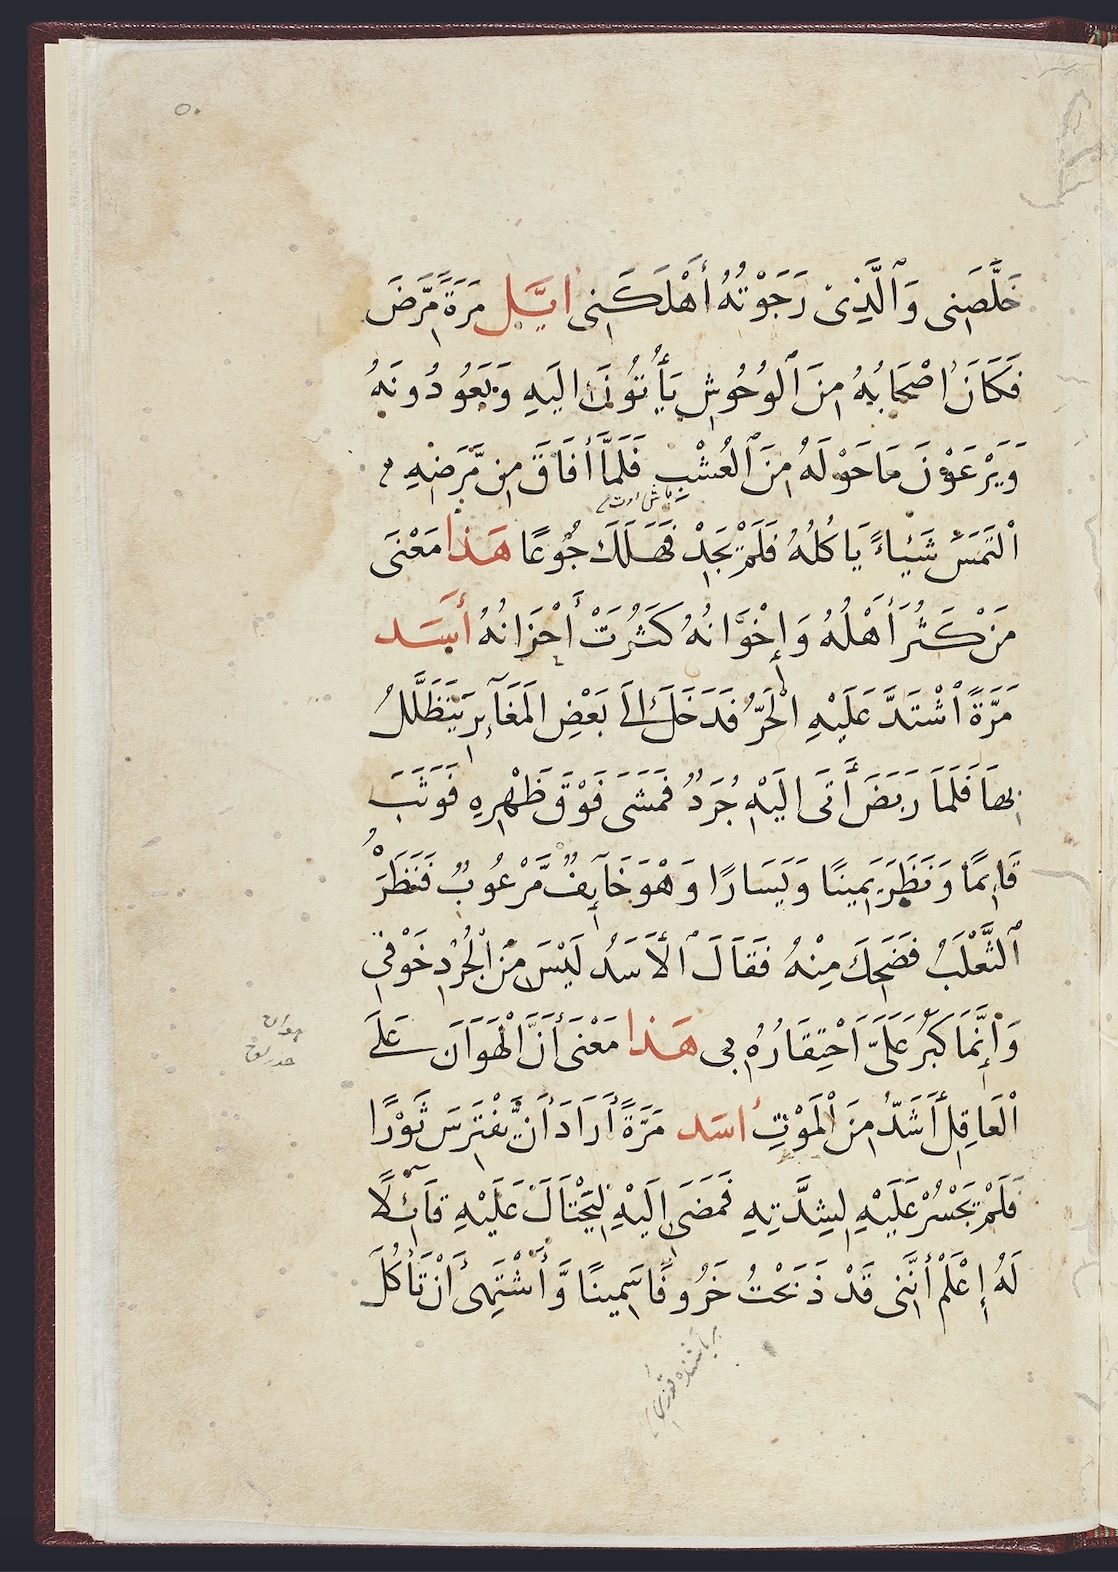 ٥٠
خَلَّصَنِى وَٱلَّذِىْ رَجَوْتُهُ أَهْلَكَنِى ايَّل مَرَةً مَّرَضَ
فَكَانَ اصْحَابُهُ مِنَ ٱلوُحُوشِ يَأْتُونَ الَيهِ وَيَعُودُونَهُ
وَيَرْعَوْنَ مَا حَوْلَهُ مِنَ ٱلعُشْبِ فَلَمَّا أفَاقَ مِن مَّرَضِهِ
الْتَمَسَ شَيْاءً يَاكُلُهُ فَلَمْ يَجِدْ فَهَلَكَ جُوعًا هَذا مَعْنَى
مَنْ كَثُرَ أَهْلُهُ وَإِخْوَانُهُ كَثُرَتْ أَحْزَانُهُ أَسَد
مَرَّةً ٱشْتَدَّ عَلَيْهِ الْحَرُّ فَدَخَلَ الَى بَعْضِ المَغَآيِرِ يَتَظَلَّلُ
بِهَا فَلَمَا رَبَضَ أَتَى الَيْهِ جُرَدٌ فَمَشَى فَوْقَ ظَهْرِهِ فَوَثَبَ
قَايِمًا وَنَظَرَ يَمِينًا وَيَسَارًا وَهْوَ خَآيِفٌ مَّرْعُوبٌ فَنَظَرَ
ٱلثَّعْلَبُ فَضَحِكَ مِنْهُ فَقَالَ ٱلأَسَدُ لَيْسَ مِنَ الْجُرْدِ خَوْفِى
وَإِنَّمَا كَبُرَ عَلَىَّ احْتِقَارُهُ بِى هَذا مَعْنَى أَنَّ الْهَوَانَ عَلَى
الْعَاقِلِ أَشَدُّ مِنَ الْمَوْتِ أسَد مَرَّةً أَرَادَ أَن يَّفْتَرِسَ ثَوْرًا
فَلَمْ يَجْسُرْ عَلَيْهِ لِشِدَّتِهِ فَمَضَى إِلَيْهِ لِيَحْتَالَ عَلَيْهِ قَآئِلًا
لَهُ إِعْلَمْ أَنَّنِى قَدْ ذَبَحْتُ خَرُوفًا سَمِينًا وَّأَشْتَهِى أَنْ تَأْكُلَ